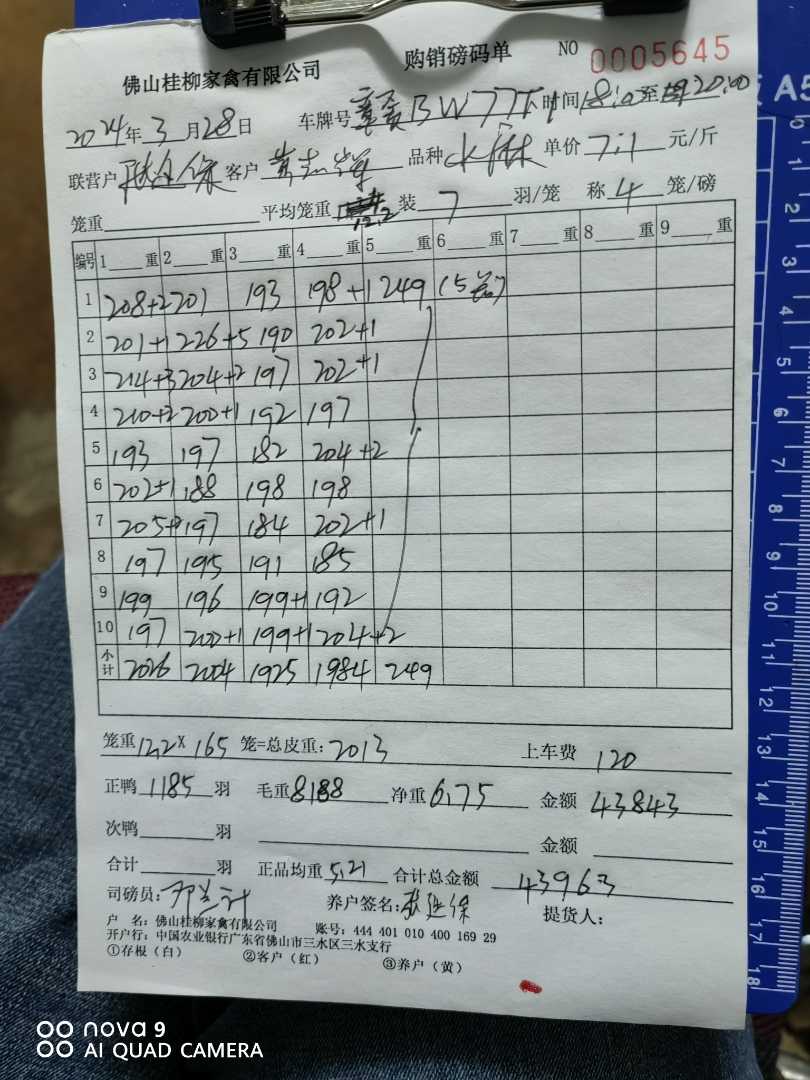 佛山桂柳家禽有限公司 购销磅码单 NO 0005645
2024年3月28日 车牌号 BW77 时间18:10至20:00
联营户 张延保 客户 黄志 品种 水 单价 7.1 元/斤
笼重 平均笼重 12.2 装 7 羽/笼 称 4 笼/磅
编号 1 重 2 重 3 重 4 重 5 重 6 重 7 重 8 重 9 重
1 208+2 201 193 198+1 249 (5笼)
2 201+1 226+5 190 202+1
3 214+3 204+2 197 202+1
4 210+2 200+1 192 197
5 193 197 182 204+2
6 202+1 188 198 198
7 205+2 197 184 202+1
8 197 195 191 185
9 199 196 199+1 192
10 197 200+1 199+1 204+2
小计 2026 2004 1925 1984 249
笼重 12.2×165 笼=总皮重:2013 上车费 120
正鸭 1185 羽 毛重 8188 净重 6175 金额 43843
次鸭 羽 金额
合计 羽 正品均重 5.21 合计总金额 43963
司磅员: 养户签名:张延保 提货人:
户 名:佛山桂柳家禽有限公司 账号:444 401 010 400 169 29
开户行:中国农业银行广东省佛山市三水区三水支行
①存根(白) ②客户(红) ③养户(黄)
A5
0 1 2 3 4 5 6 7 8 9 10 11 12 13 14 15 16 17 18
nova 9
AI QUAD CAMERA